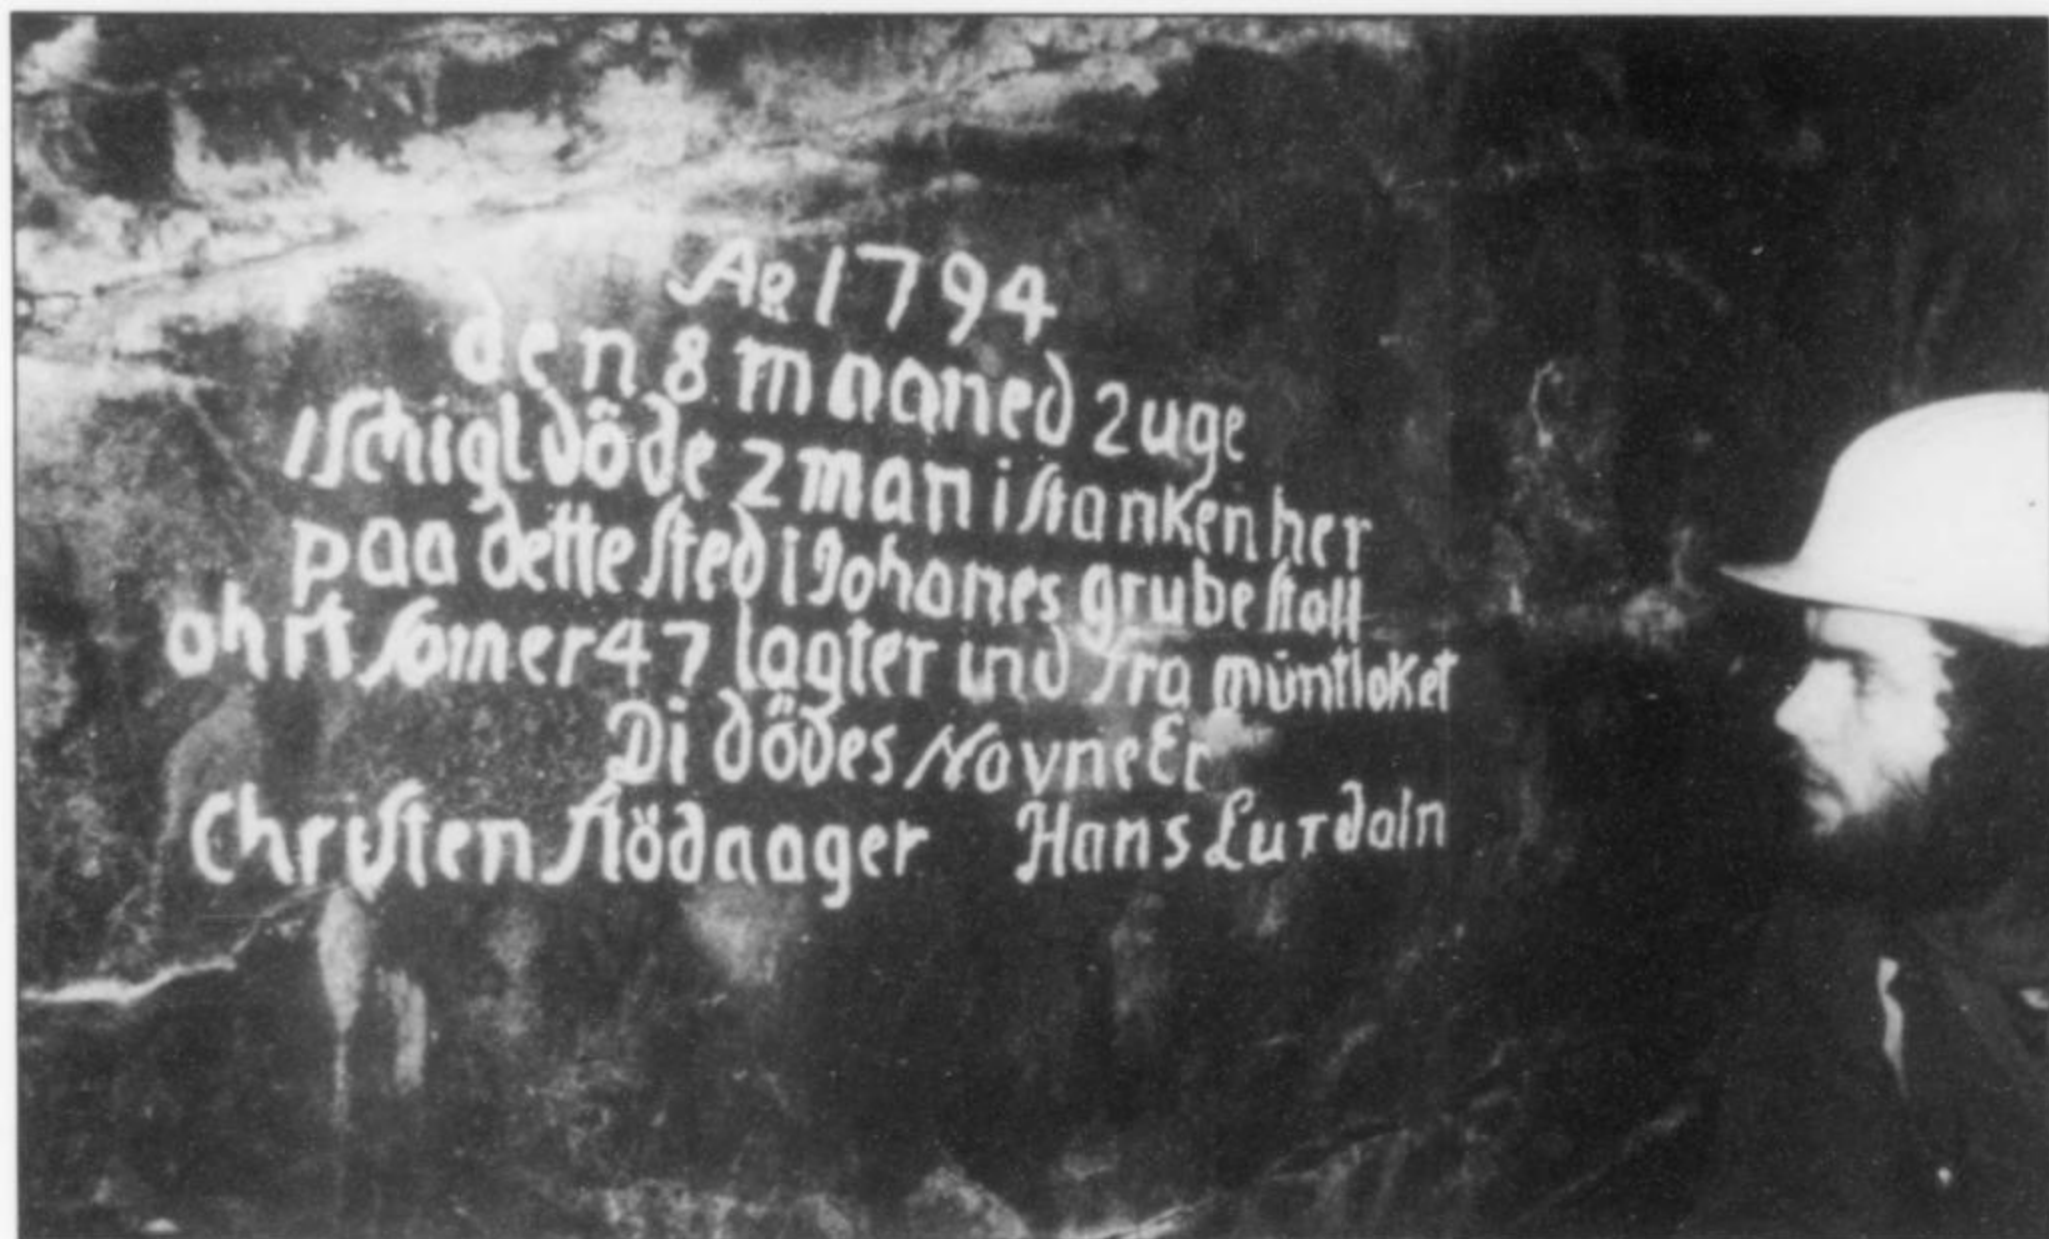 Ao 1794
den 8 maaned 2 uge
1 schigl döde 2 man i stanken her
paa dette sted i Johanes grube stoll
ohrt somer 47 lagter ind fra muntloket
Di dödes Navne Er
Christen Stödaager Hans Lurdaln